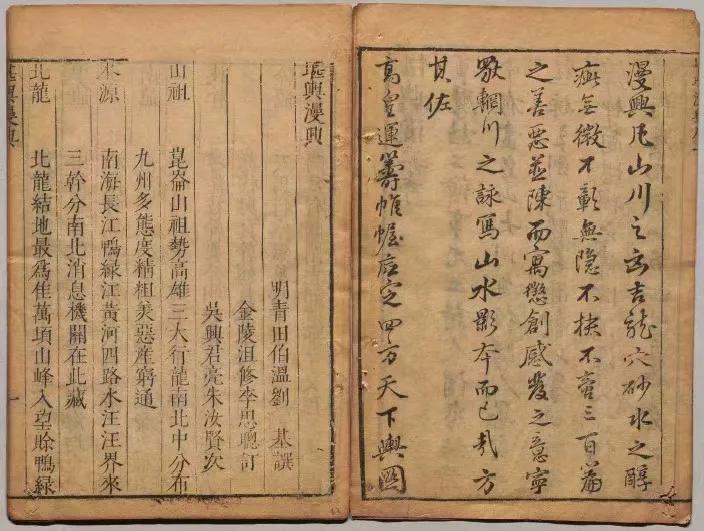 漫興凡山川之凶吉龍穴砂水之醇
疵無微不彰無隱不抉不啻三百篇
之善惡並陳而寓懲創感發之意寧
輞川之詠寫山水影本而已哉方
其佐
高皇運籌帷幄底定四方天下輿圖
堪輿漫興
明青田伯溫劉基譔
金陵沮修李思聰訂
吳興君亮朱汝賢次
山祖
崑崙山祖勢高雄三大行龍南北中分布
九州多態度精粗美惡產窮通
水源
南海長江鴨綠江黃河四路水汪汪界來
三幹分南北消息機關在此藏
北龍
北龍結地最爲佳萬頃山峰入望賒鴨綠
堪輿漫興
一